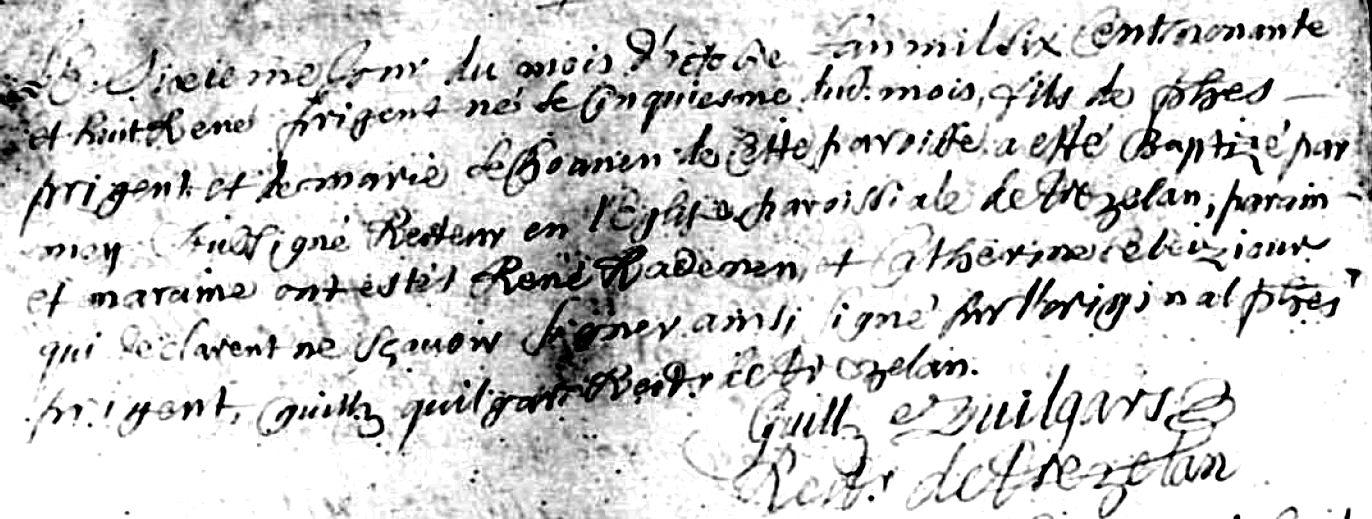 Le Sixieme Jour du mois d'octobre L'an mil Six Cent nonante
et huit René prigent né le Cinquiesme dud. mois, fils de phes
prigent et de marie le Goanen de Cette paroisse a esté Baptizé par
moy Subsigné Recteur en l'Eglise paroissiale de trezelan, parain
et maraine ont estés René Kadenen, et Catherine le beizjour
qui declarent ne sçauoir Signer ainsi signé sur l'original phes
prigent, Guillz quilgars Rectr de trezelan.
Guillz Quilgars
Rectr de trezelan